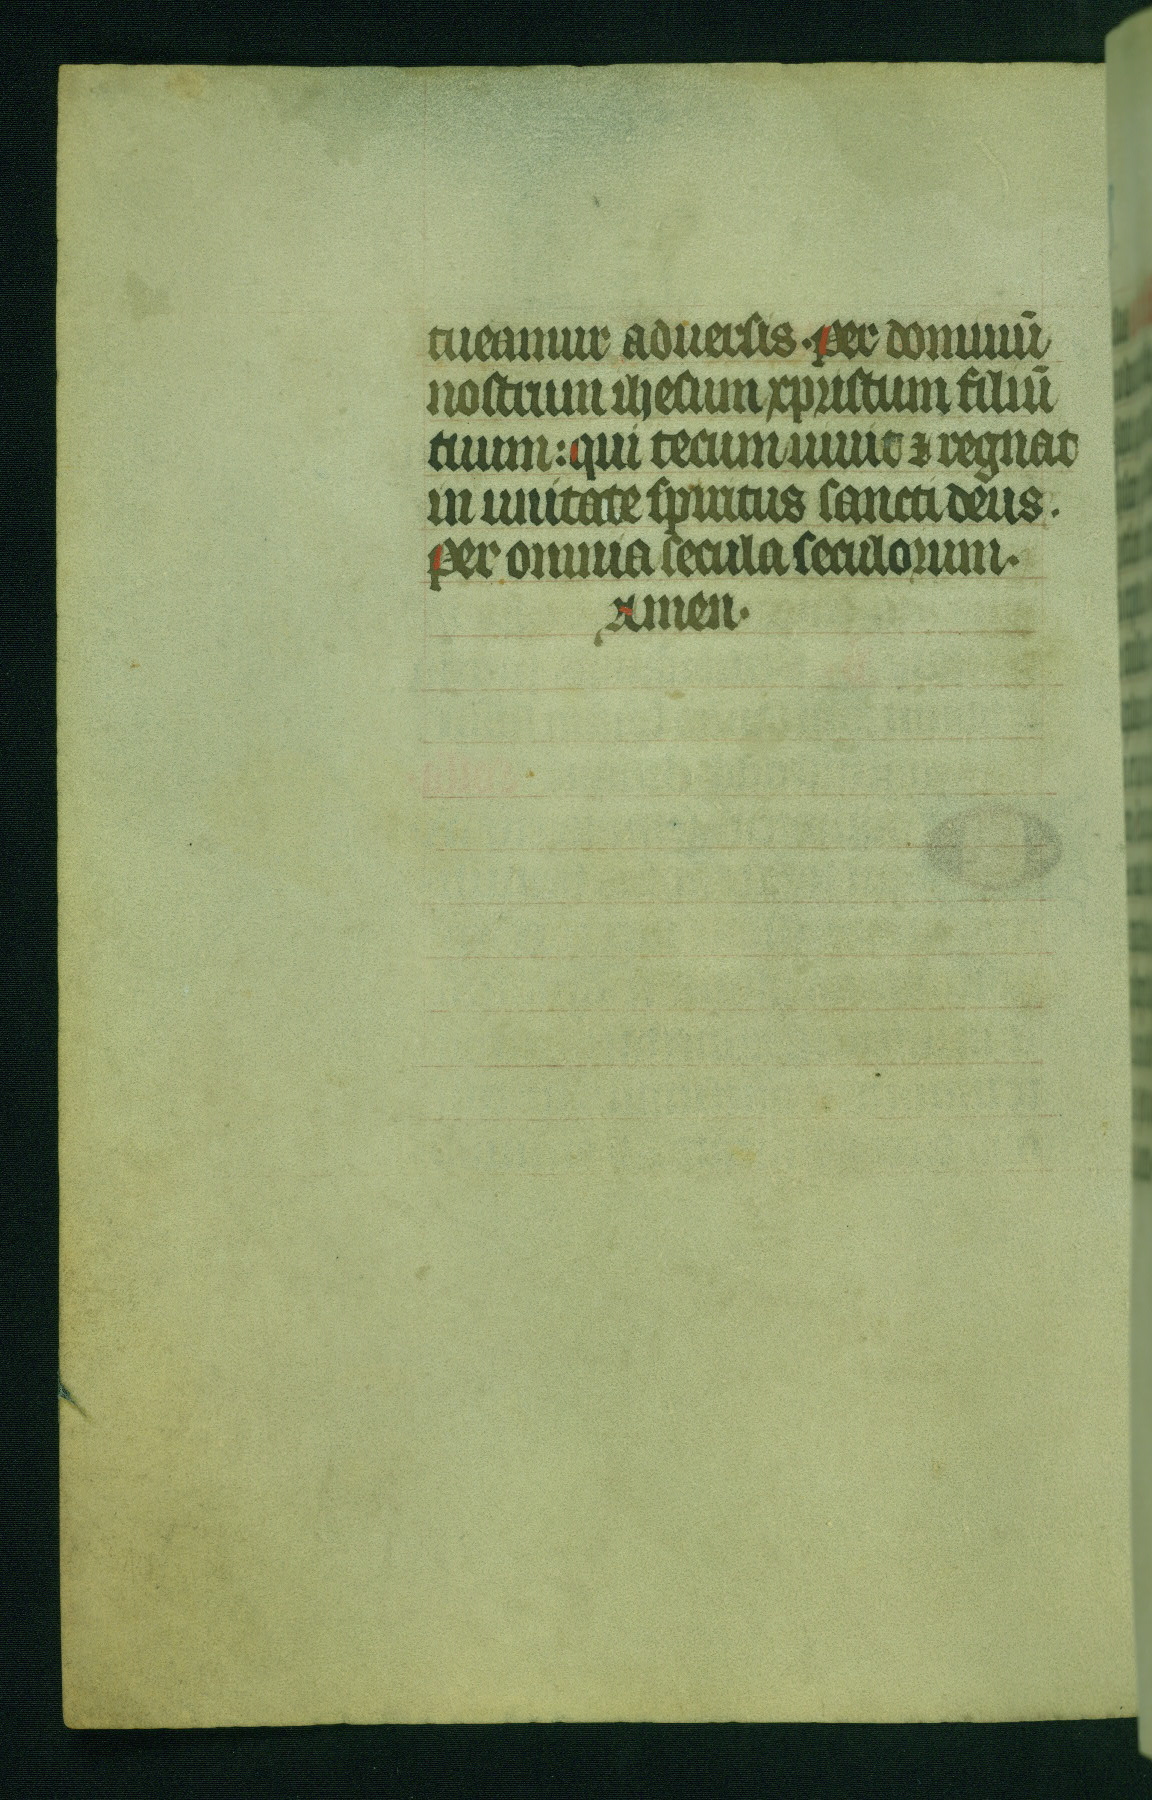 tueamur aduersis. per dominū
nostrum ihesum xpristum filiū
tuum: qui tecum uiuit ⁊ regnat
in unitate spiritus sancti deus.
per omnia secula seculorum.
Amen.